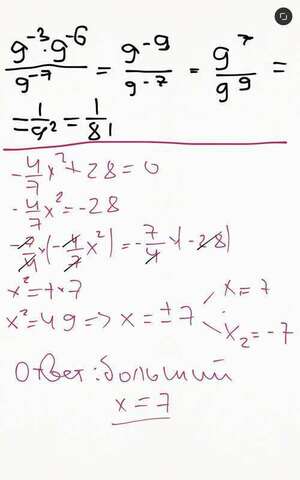 9⁻³·9⁻⁶/9⁻⁷ = 9⁻⁹/9⁻⁷ = 9⁷/9⁹ =
= 1/9² = 1/81
-4/7x²+28=0
-4/7x²=-28
-7/4×(-4/7x²)=-7/4×(-28)
x²=7×7
x²=49=>x=±7 x=7
x₂=-7
Ответ: больший
x=7